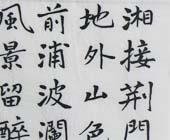 湘接荆門
地外山色
前浦波瀾
風景留醉